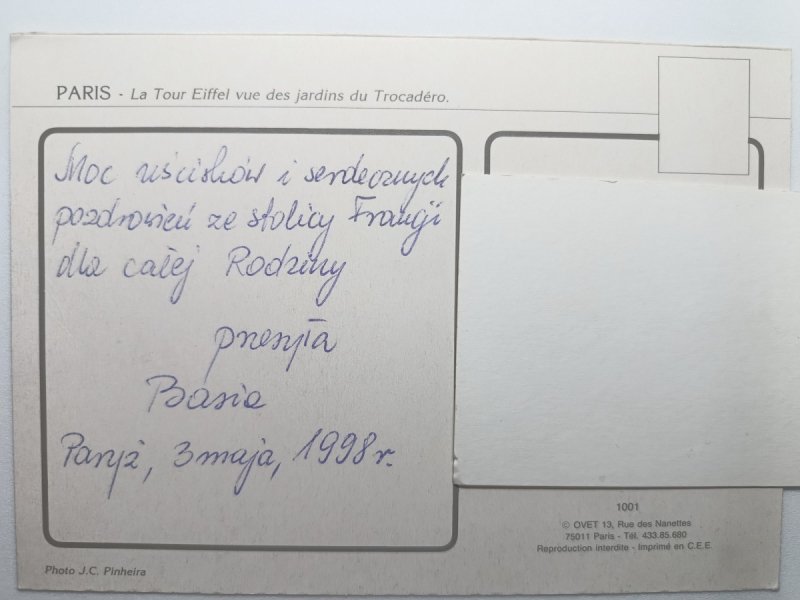 PARIS - La Tour Eiffel vue des jardins du Trocadéro.
Moc uścisków i serdecznych
pozdrowień ze stolicy Francji
dla całej Rodziny
przesyła
Basia
Paryż, 3 maja, 1998 r.
1001
© OVET 13, Rue des Nanettes
75011 Paris - Tél. 433.85.680
Reproduction interdite - Imprimé en C.E.E.
Photo J.C. Pinheira